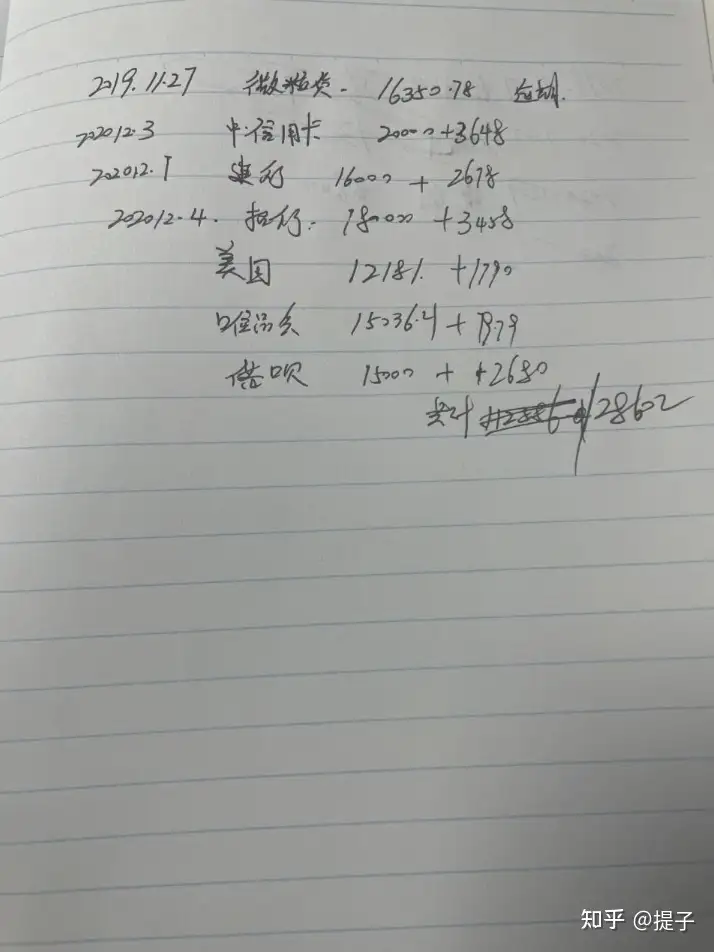 2019.11.27 微粒贷. 16350.78 逾期.
202012.3 中信用卡 20000+3648
202012.1 建行 16000 + 2678
202012.4. 招行: 18000 + 3458
美团 12181. +1790
15036.41 +
借呗 15000 + +2680
共计 128602
知乎 @提子